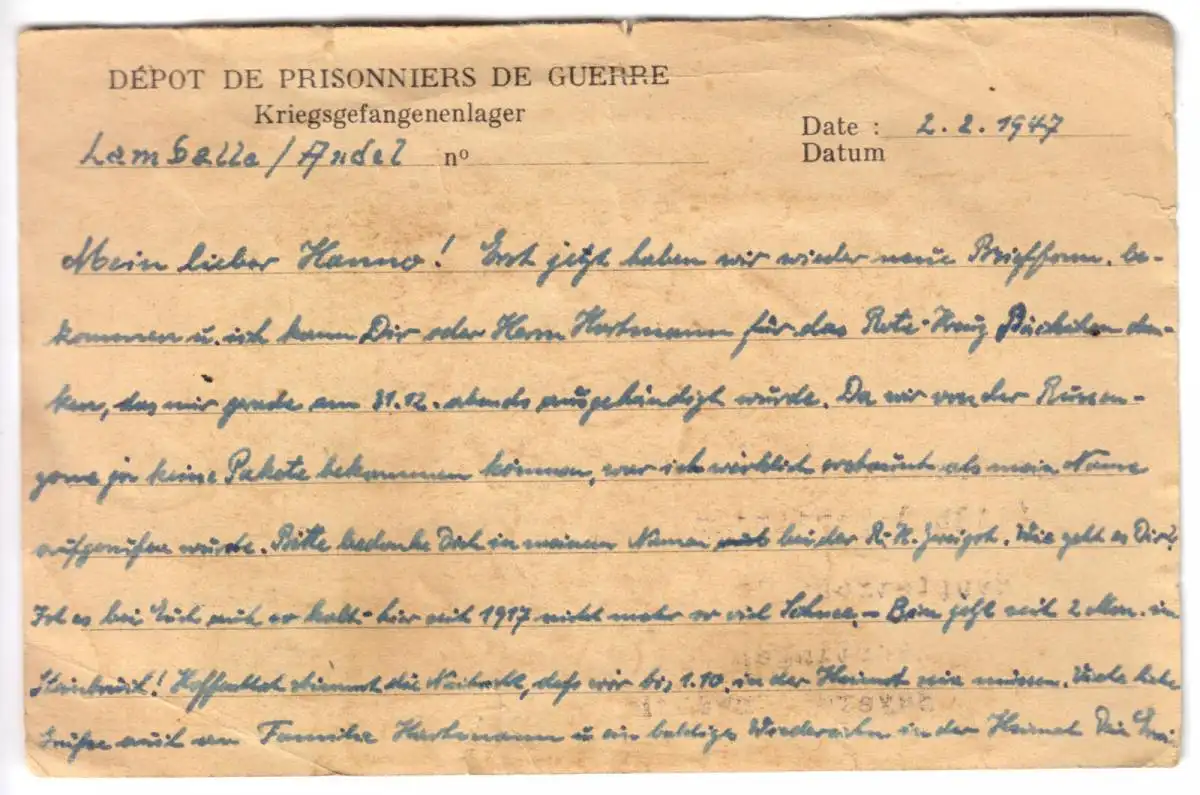 DÉPOT DE PRISONNIERS DE GUERRE
Kriegsgefangenenlager
Lamballe / Andel nº
Date : 2.2.1947
Datum
Mein lieber Hanno! Erst jetzt haben wir wieder neue Briefform. be-
kommen u. ich kann Dir oder Herrn Hartmann für das Rote-Kreuz Päckchen dan-
ken, das mir gerade am 31.12. abends ausgehändigt wurde. Da wir von der Russen-
zone ja keine Pakete bekommen können, war ich wirklich erstaunt als mein Name
aufgerufen wurde. Bitte bedanke Dich in meinem Namen bei der R.K. Wie geht es Dir?
Ist es bei Euch auch so kalt - hier seit 1917 nicht mehr so viel Schnee. - Bin jetzt seit 2 Mon. im
Steinbruch! Hoffentlich stimmt die Nachricht, daß wir bis 1.10. in der Heimat sein müssen. Viele liebe
Grüße auch an Familie Hartmann u. ein baldiges Wiedersehen in der Heimat